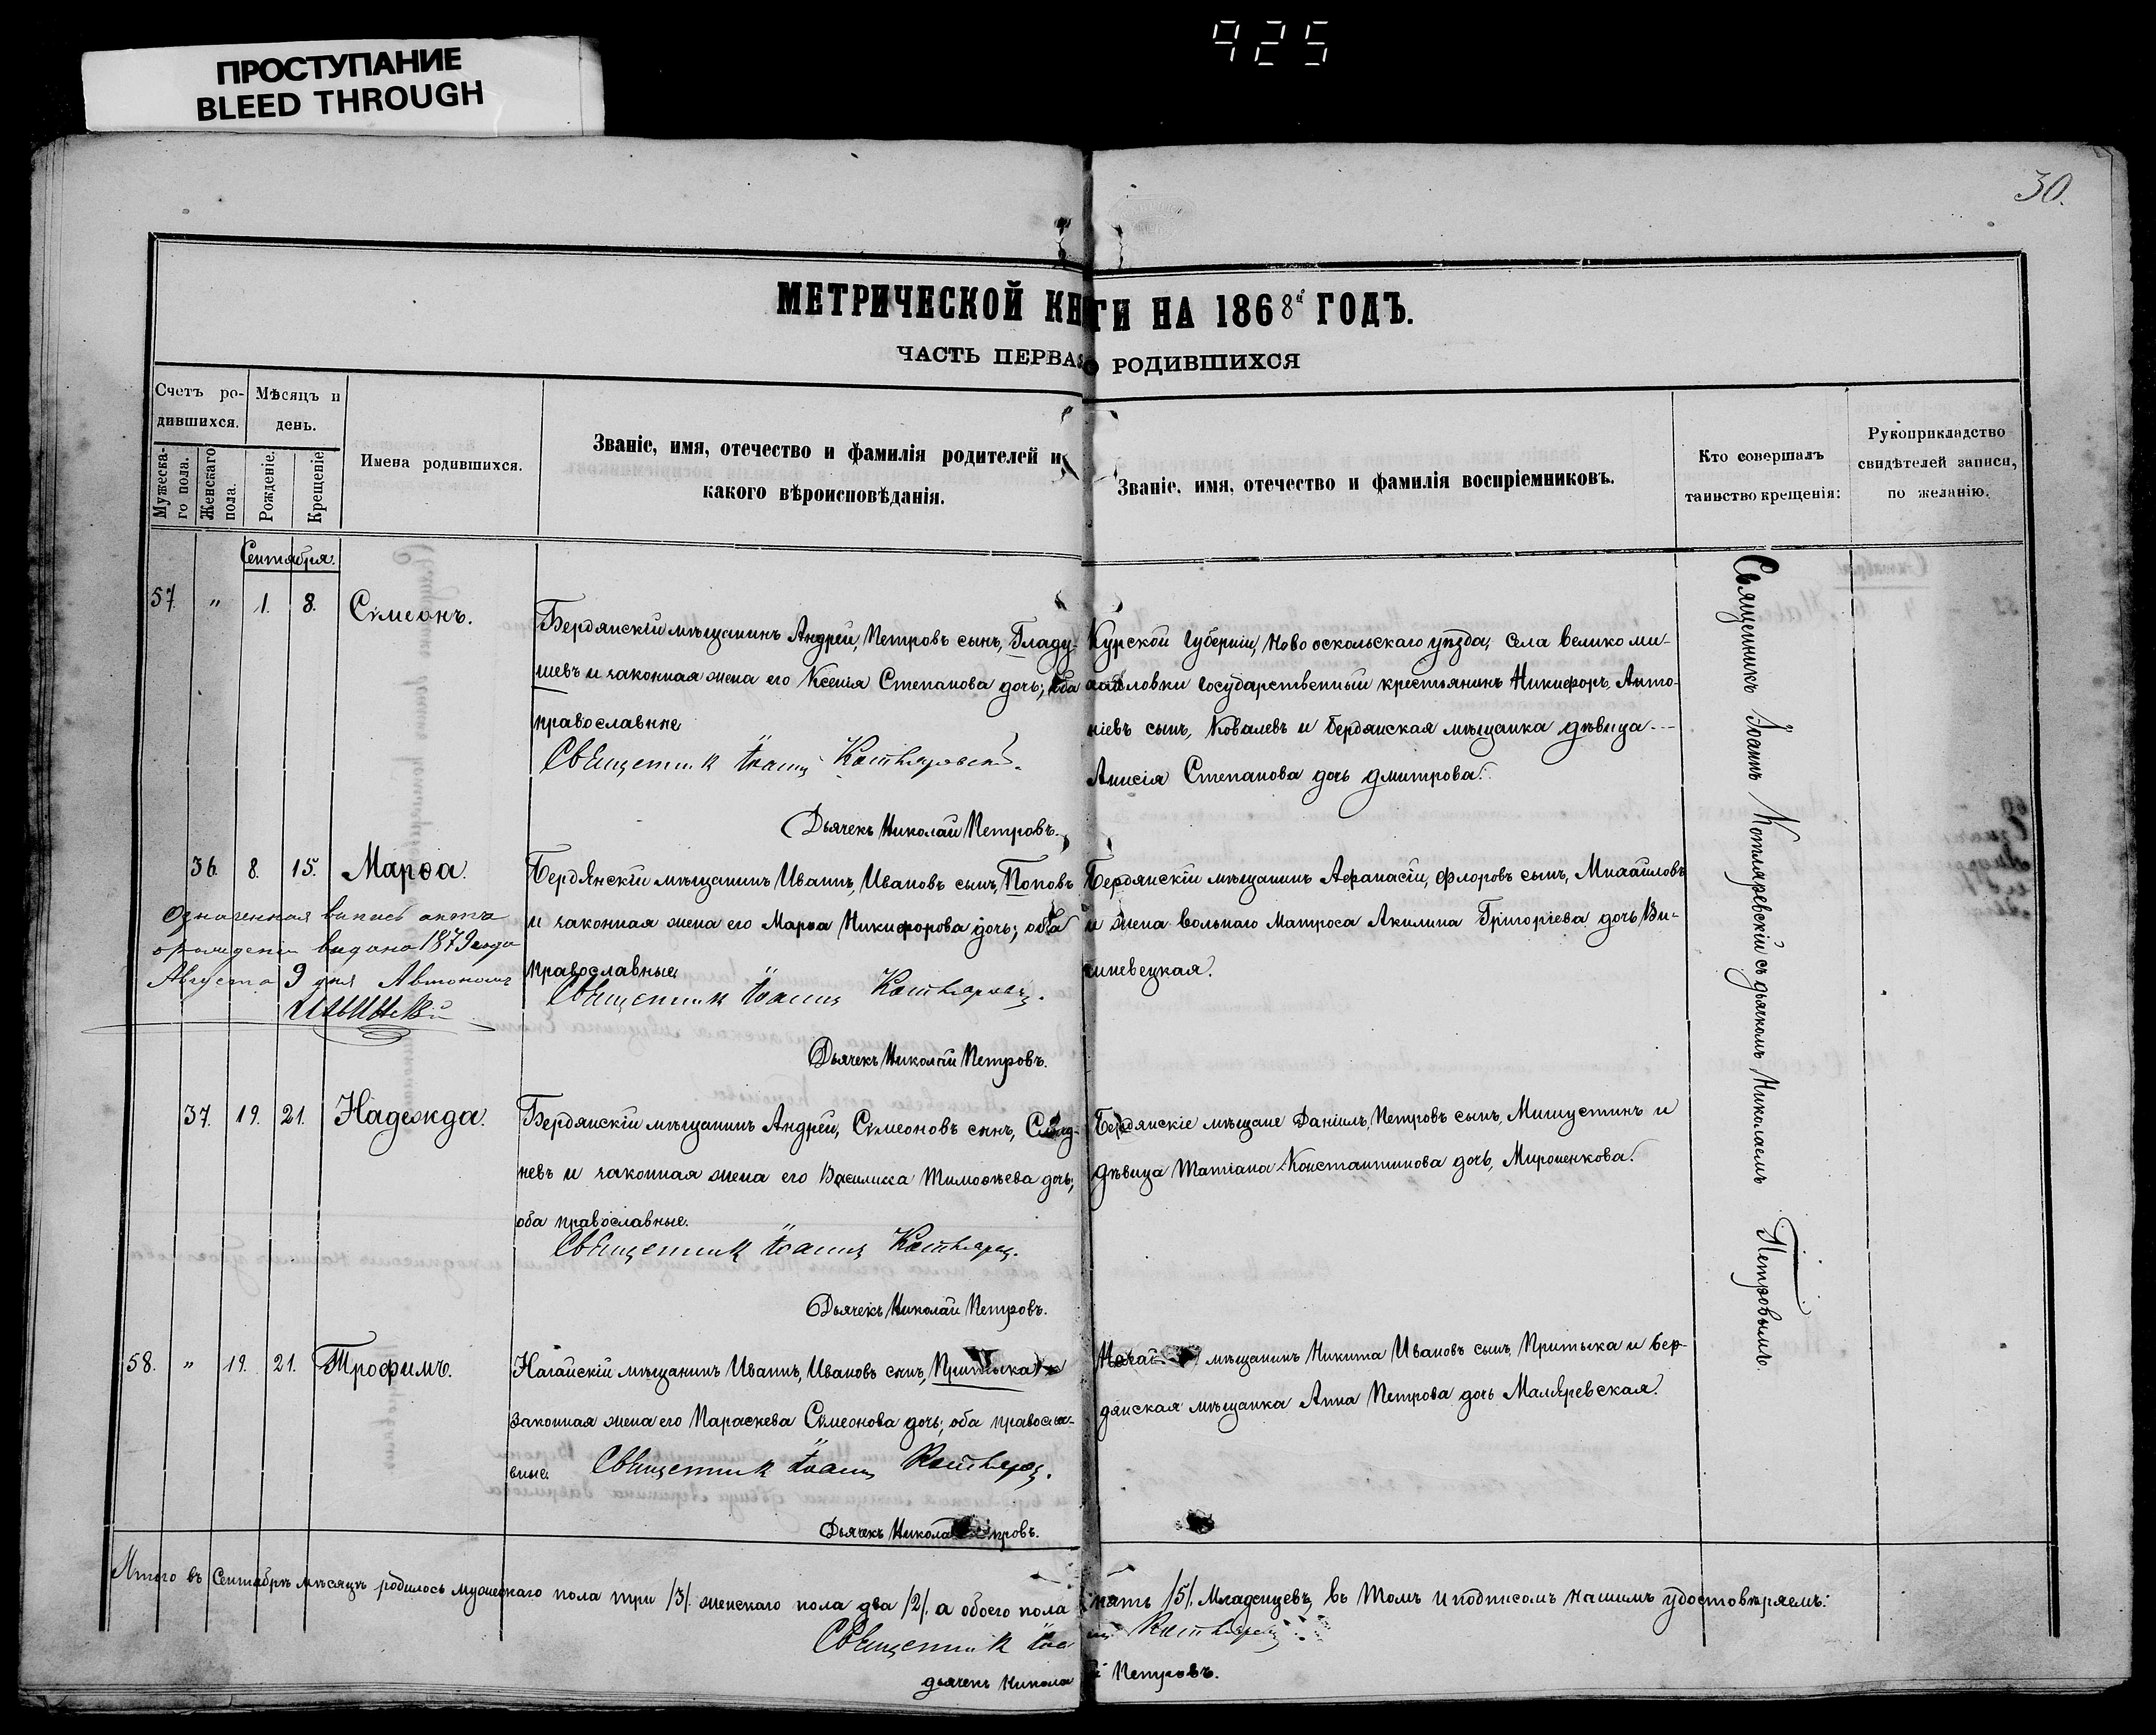 925
ПРОСТУПАНИЕ
BLEED THROUGH
30.
МЕТРИЧЕСКОЙ КНИГИ НА 1868й ГОДЪ.
ЧАСТЬ ПЕРВАЯ О РОДИВШИХСЯ
Счетъ ро-
дившихся.
Мужеска-
го пола.
Женскаго
пола.
Мѣсяцъ и
день.
Рожденіе.
Крещеніе.
Имена родившихся.
Званіе, имя, отечество и фамилія родителей и
какого вѣроисповѣданія.
Званіе, имя, отечество и фамилія воспріемниковъ.
Кто совершалъ
таинство крещенія:
Рукоприкладство
свидѣтелей записи,
по желанію.
Сентября.
57. " 1. 8. Симеонъ.
Бердянскій мѣщанинъ Андрей, Петровъ сынъ, Гладу-
шевъ и законная жена его Ксенія Степанова дочь; оба
православные
Священник Іоанн Котляревскій.
Дьячекъ Николай Петровъ.
Курской Губерніи, Ново оскольскаго уѣзда, села велико ми-
хайловки государственный крестьянинъ Никифоръ, Анто-
ніевъ сынъ, Ковалевъ и бердянская мѣщанка дѣвица
Анисія Степанова дочь Дмитрова.
36. 8. 15. Марѳа.
Означенная випись акта
о рождении видана 1879 года
Августа 9 дня
Бердянскій мѣщанинъ Иванъ, Ивановъ сынъ, Поповъ
и законная жена его Марѳа Никифорова дочь; оба
православные
Священник Іоанн
Дьячекъ Николай Петровъ.
Бердянскій мѣщанинъ Афанасій, Флоровъ сынъ, Михайловъ
и жена вольнаго матроса Акилина Григоріева дочь Ви-
шневецкая.
37. 19. 21. Надежда.
Бердянскій мѣщанинъ Андрей, Симеоновъ сынъ,
невъ и законная жена его Василисса Тимоѳѣева дочь;
оба православные.
Священник Іоанн
Дьячекъ Николай Петровъ.
Бердянскіе мѣщане Даніилъ, Петровъ сынъ, Мишустинъ и
дѣвица Татіана Константинова дочь, Мироненкова.
58. " 19. 21. Трофимъ.
Нагайскій мѣщанинъ Иванъ, Ивановъ сынъ, Притыка и
законная жена его Параскева Симеонова дочь; оба православ-
ные.
Священник Іоанн
Дьячекъ Николай Петровъ.
мѣщанинъ Никита Ивановъ сынъ, Притыка и бер-
дянская мѣщанка Анна Петрова дочь Маляревская.
Священникъ Іоаннъ Котляревскій съ дьячкомъ Николаемъ Петровымъ.
Итого въ Сентябрѣ мѣсяцѣ родилось мужескаго пола три /3/. женскаго пола два /2/. а обоего пола пять /5/. Младенцевъ, въ томъ и подписомъ нашимъ удостовѣряемъ:
Священник Іоанн
дьячекъ Николай Петровъ.